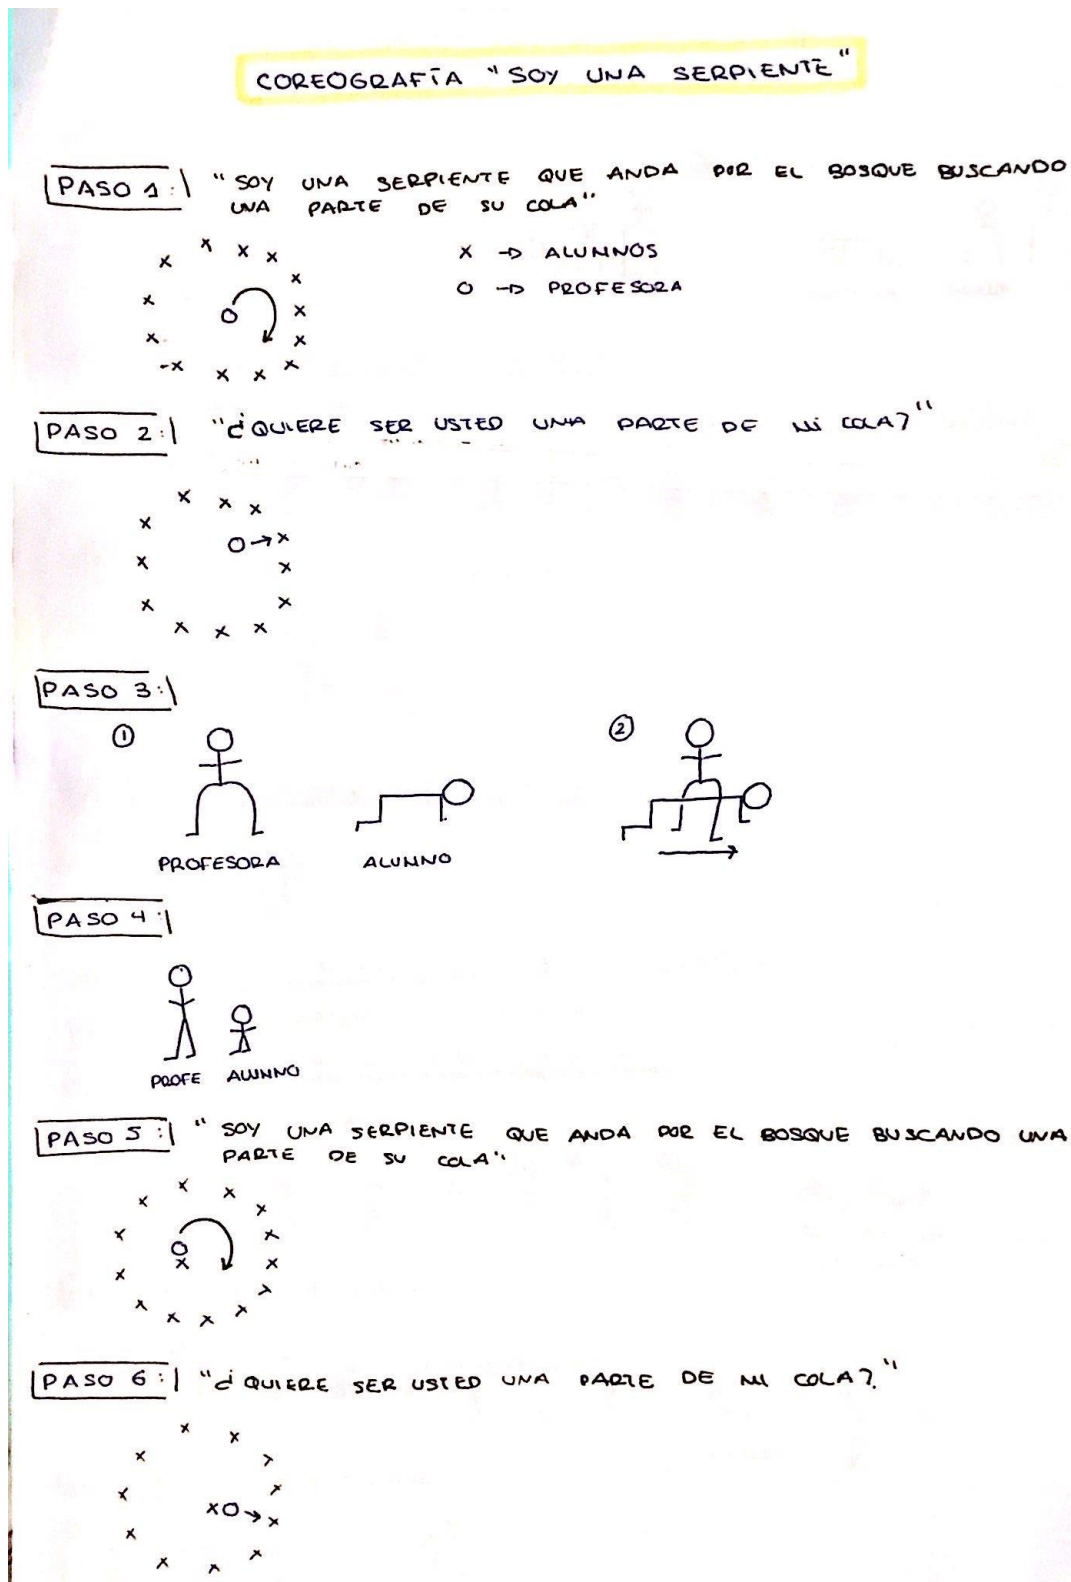 COREOGRAFÍA "SOY UNA SERPIENTE"
PASO 1: "SOY UNA SERPIENTE QUE ANDA POR EL BOSQUE BUSCANDO
UNA PARTE DE SU COLA"
X → ALUMNOS
O → PROFESORA
PASO 2: "¿QUIERE SER USTED UNA PARTE DE MI COLA?"
PASO 3:
1 2
PROFESORA ALUMNO
PASO 4:
PROFE ALUMNO
PASO 5: "SOY UNA SERPIENTE QUE ANDA POR EL BOSQUE BUSCANDO UNA
PARTE DE SU COLA"
PASO 6: "¿QUIERE SER USTED UNA PARTE DE MI COLA?"